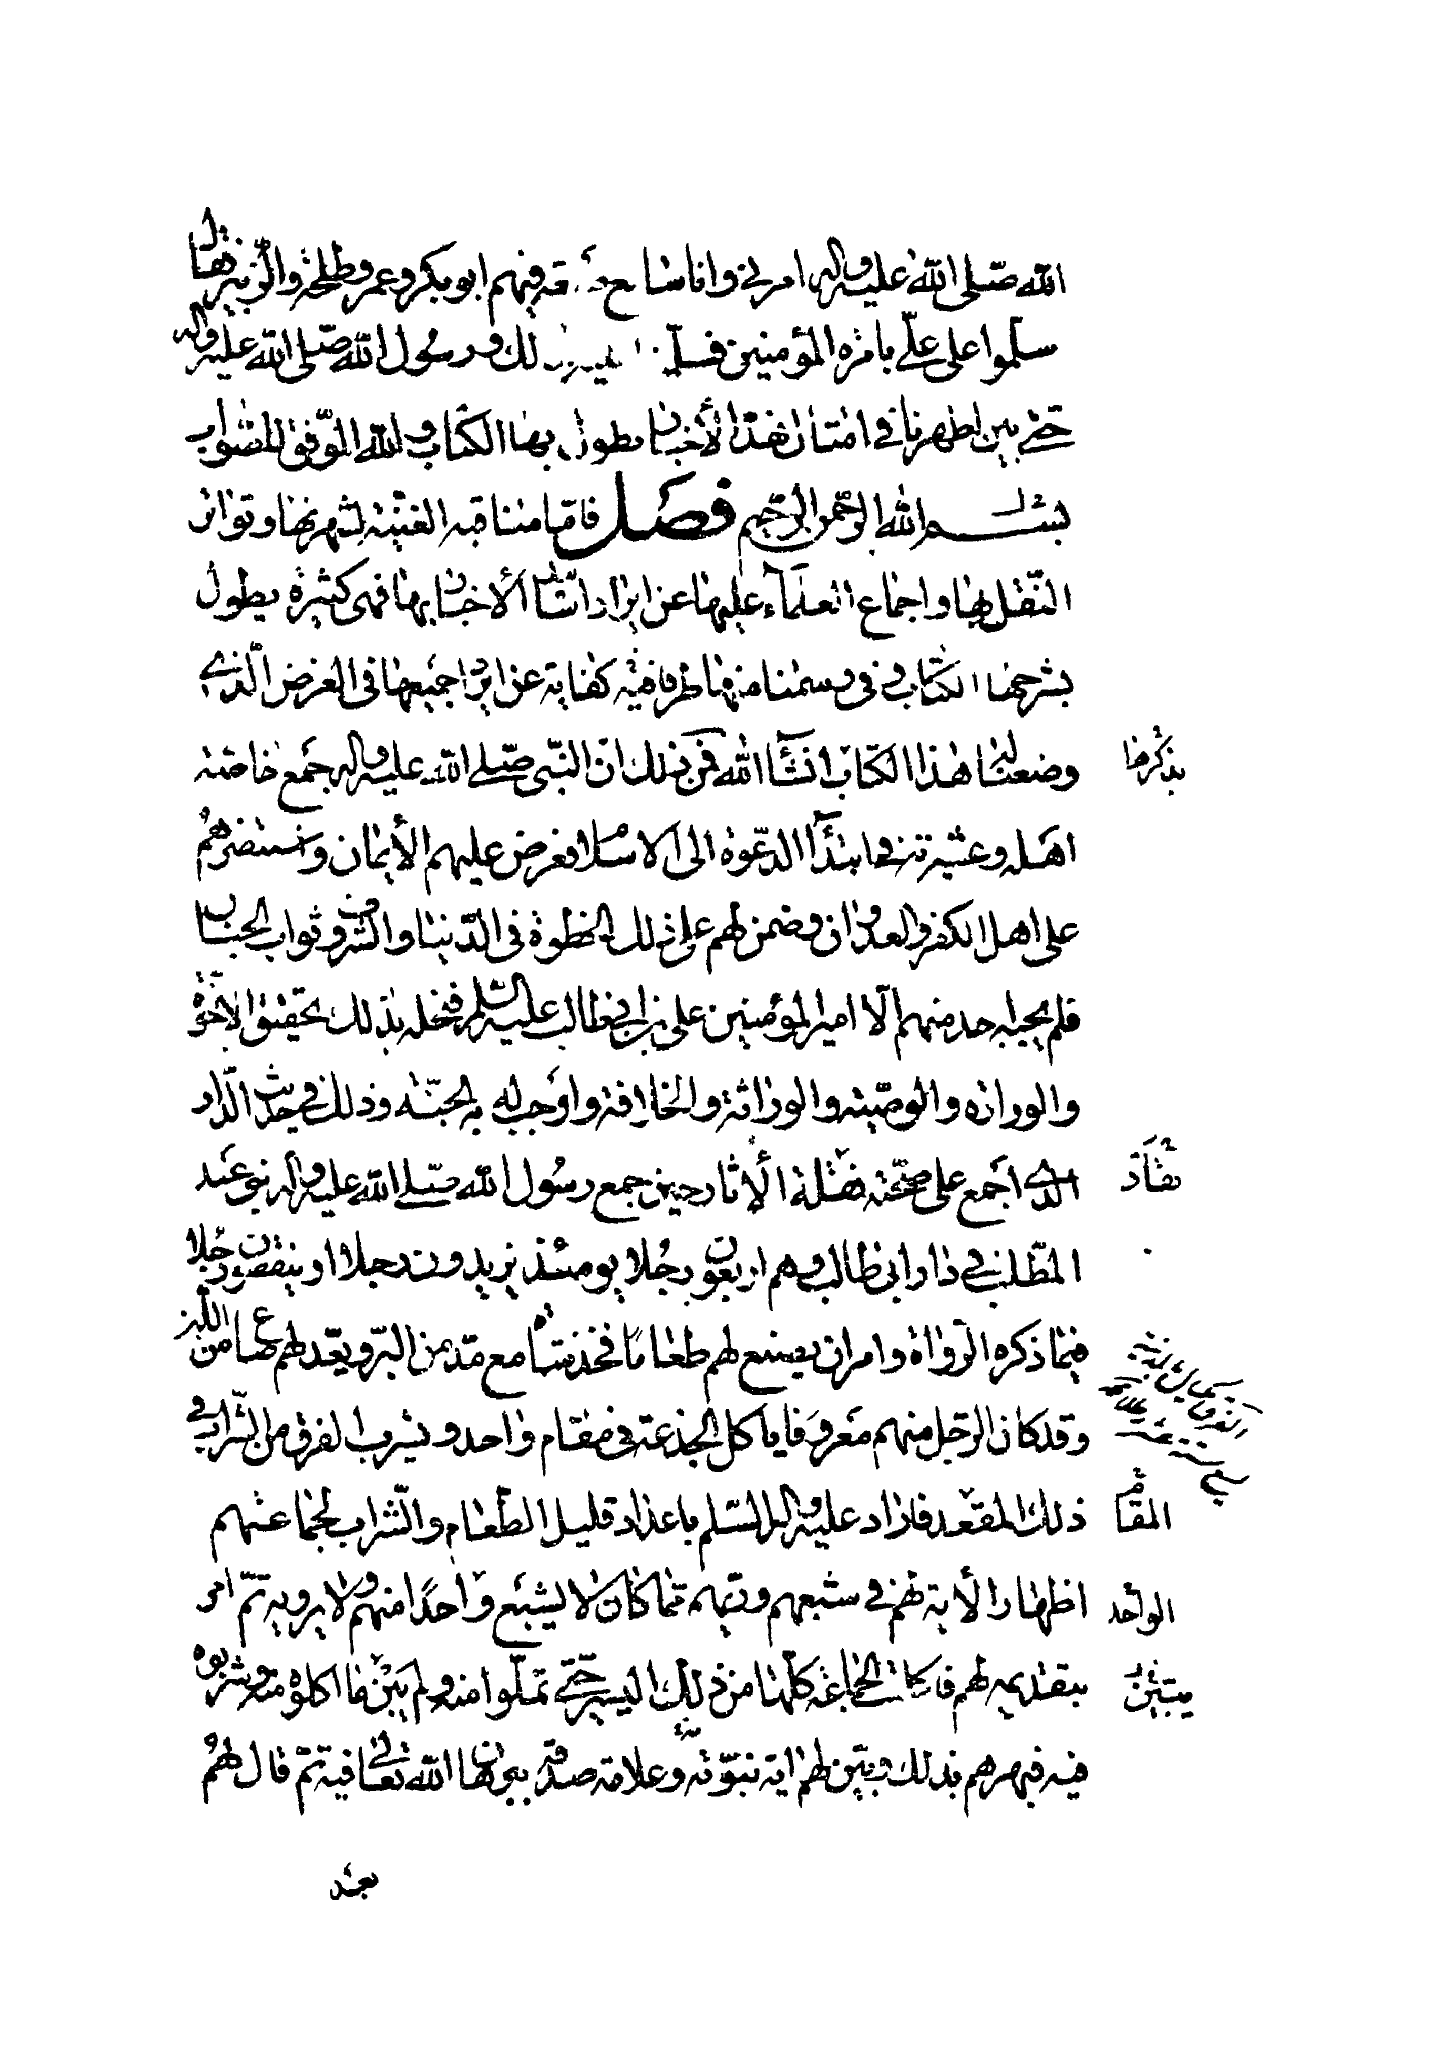 الله صلى الله عليه واله امرني وانا سابع سبعة فيهم ابو بكر وعمر وطلحة والزبير فقال
سلموا على علي بامرة المؤمنين فسلمنا عليه بذلك ورسول الله صلى الله عليه واله
حي بين اظهرنا في امثال هذا الأخبار يطول بها الكتاب والله الموفق للصواب
بسم الله الرحمن الرحيم فصل فاما مناقبه الغنية لشهرتها وتواتر
النقل بها واجماع العلماء عليها عن ايراد اسانيد الأخبار بها فهي كثيرة يطول
بشرحها الكتاب وفي رسمنا منها طرفا فيه كفاية عن ايراد جميعها في الغرض الذي
وضعنا له هذا الكتاب انشاء الله فمن ذلك ان النبي صلى الله عليه واله جمع خاصة
اهله وعشيرته في ابتداء الدعوة الى الاسلام فعرض عليهم الأيمان واستنصرهم
على اهل الكفر والعدوان وضمن لهم على ذلك الحظوة في الدنيا والشرف وثواب الجنان
فلم يجبه احد منهم الا امير المؤمنين علي بن ابي طالب عليه السلم فنحله بذلك تحقيق الاخوة
والوزارة والوصية والوراثة والخلافة واوجب له به الجنة وذلك في حديث الدار
الذي اجمع على صحته نقلة الأثار حين جمع رسول الله صلى الله عليه واله بني عبد
المطلب في دار ابي طالب وهم اربعون رجلا يومئذ يزيدون رجلا او ينقصون رجلا
فيما ذكره الرواة وامر ان يصنع لهم طعاما فخذ شاة مع مد من البر ويعد لهم صاع من اللبن
وقد كان الرجل منهم معروفا ياكل الجذعة في مقام واحد ويشرب الفرق من الشراب في
ذلك المقعد فاراد عليه واله السلم باعداد قليل الطعام والشراب لجماعتهم
اظهار الأية لهم في شبعهم وريهم مما كان لا يشبع واحدا منهم ولا يرويه ثم امر
بتقديمه لهم فاكلت الجماعة كلها من ذلك اليسير حتى تملوا منه ولم يبن ما اكلوه منه وشربوه
فيه فبهرهم بذلك وبين لهم اية نبوته وعلامة صدقه ببرهان الله تعالى فيه ثم قال لهم
بعد
بذكرها
نقاد
المقام
الواحد
يتبين